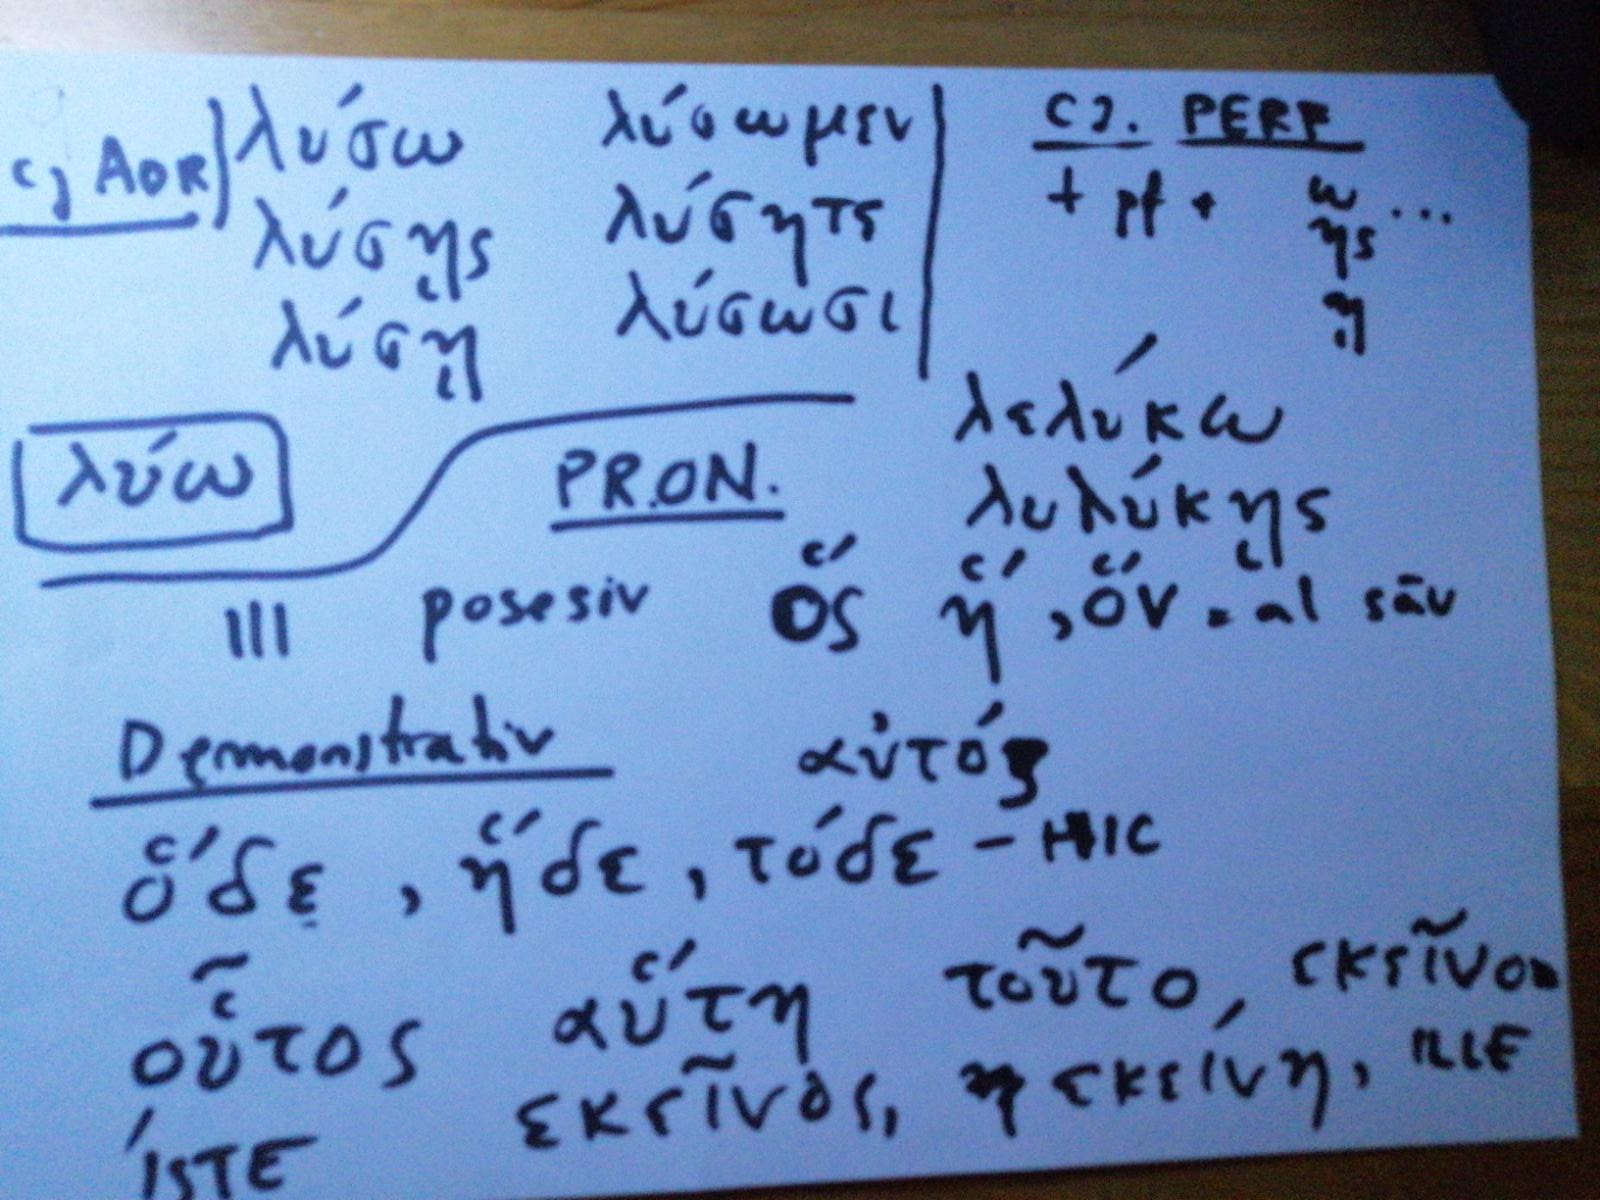 cj AOR λύσω λύσωμεν
λύσῃς λύσητε
λύσῃ λύσωσι
CJ. PERF
+ pf + ω ...
ῃς
ῃ
λελύκω
λυλύκῃς
λύω
PRON.
III posesiv ὅς ἥ, ὅν = al său
Demonstrativ αὐτός
ὅδε, ἥδε, τόδε - HIC
οὗτος αὕτη τοῦτο, εκεῖνο
ISTE εκεῖνος, εκείνη, ILLE